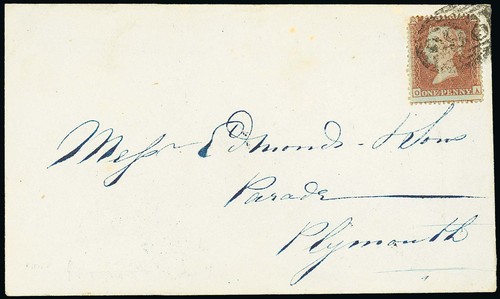 O ONE PENNY A
Messrs Edmonds & Sons
Parade
Plymouth